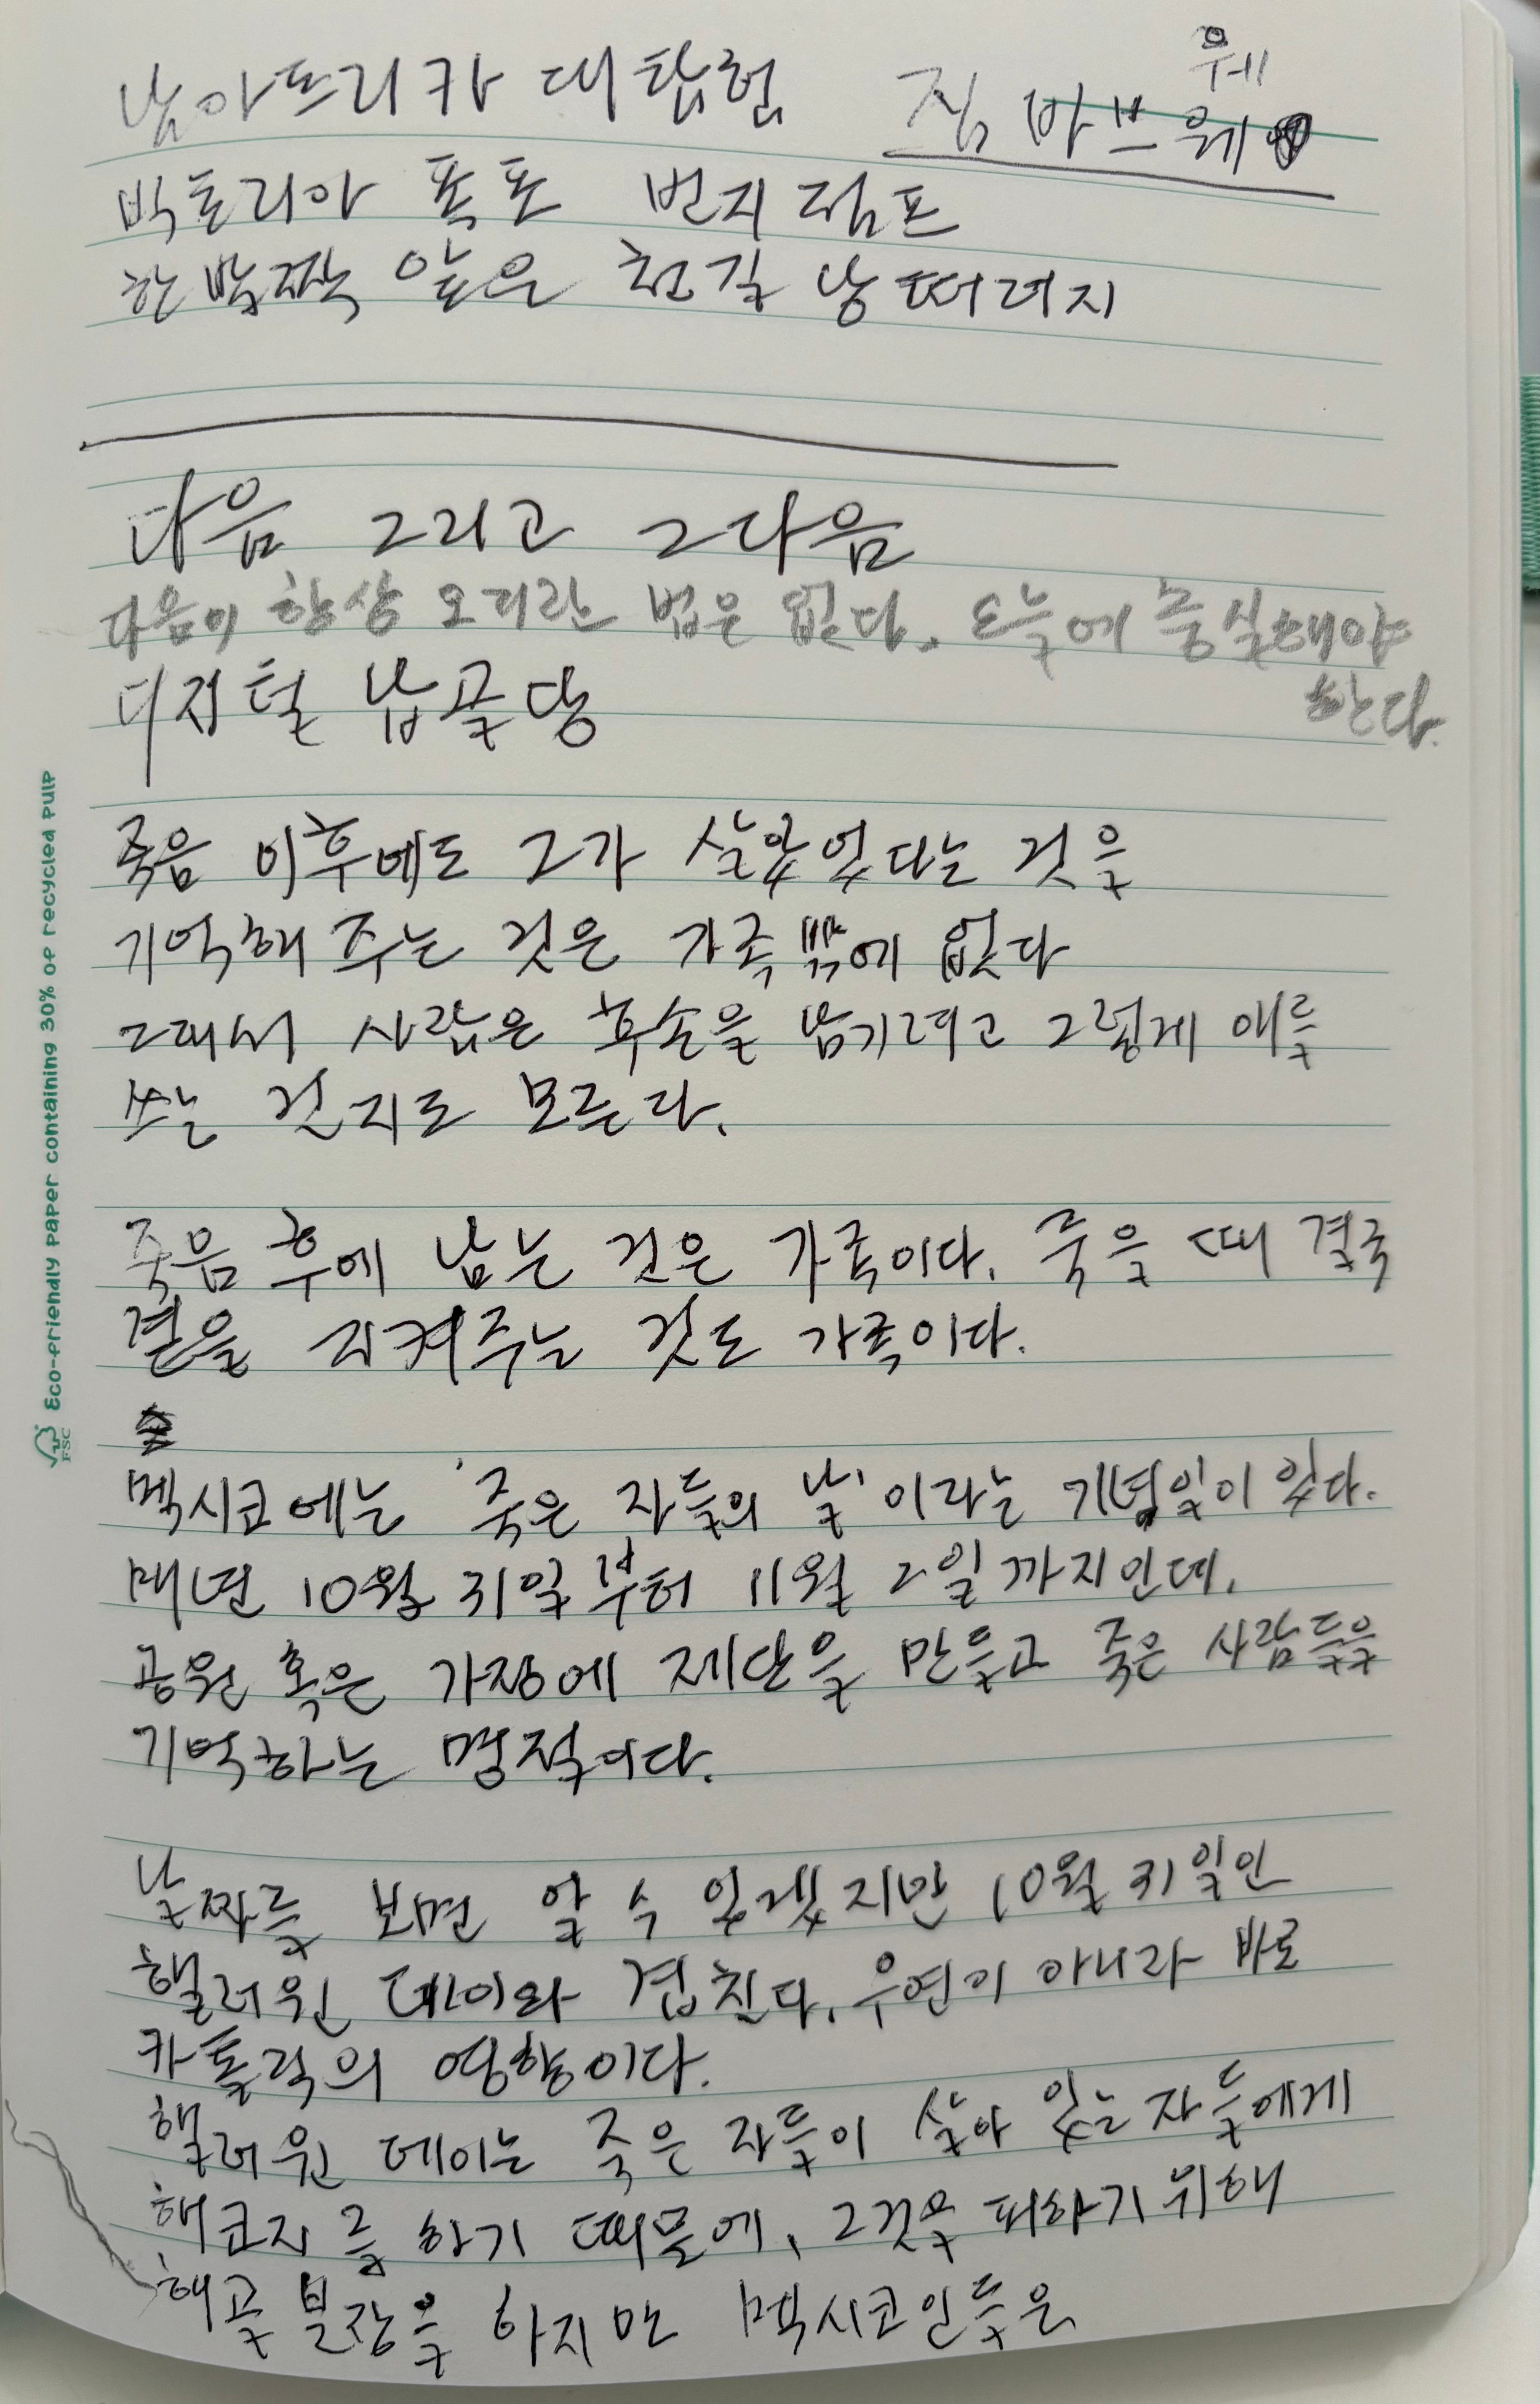 웨
남아프리카 대탐험 짐바브웨
빅토리아 폭포 번지점프
한 발짝 앞은 천길 낭떠러지
다음 그리고 그다음
다음이 항상 오리란 법은 없다. 오늘에 충실해야
한다.
디지털 납골당
죽음 이후에도 그가 살았었다는 것을
기억해 주는 것은 가족 밖에 없다
그래서 사람은 후손을 남기려고 그렇게 애를
쓰는 건지도 모른다.
죽음 후에 남는 것은 가족이다. 죽을 때 결국
곁을 지켜주는 것도 가족이다.
멕시코에는 '죽은 자들의 날'이라는 기념일이 있다.
매년 10월 31일부터 11월 2일까지인데,
공원 혹은 가정에 제단을 만들고 죽은 사람들을
기억하는 명절이다.
날짜를 보면 알 수 있겠지만 10월 31일인
핼러윈 데이와 겹친다. 우연이 아니라 바로
카톨릭의 영향이다.
핼러윈 데이는 죽은 자들이 살아 있는 자들에게
해코지를 하기 때문에, 그것을 피하기 위해
해골 분장을 하지만 멕시코인들은
FSC Eco-friendly paper containing 30% of recycled pulp